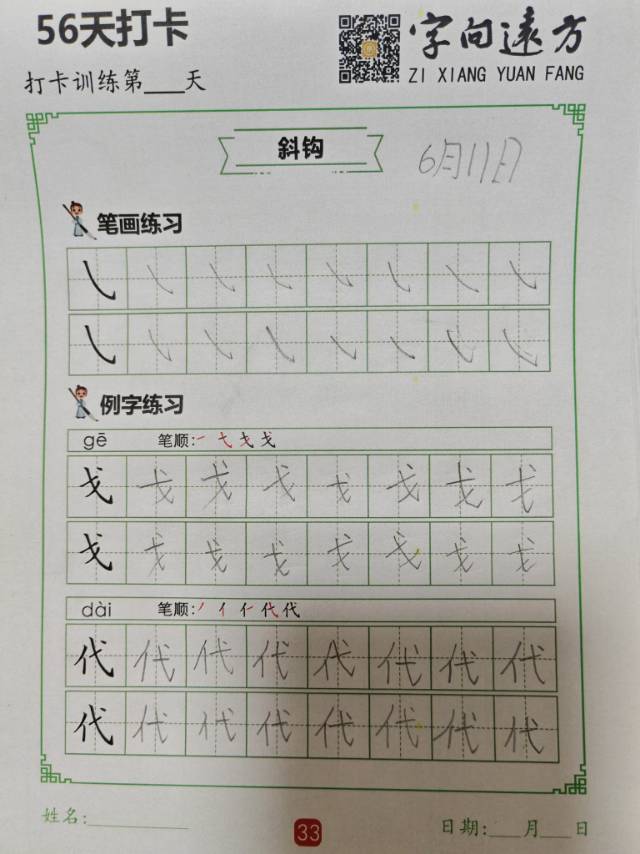 56天打卡
字向远方
ZI XIANG YUAN FANG
打卡训练第___天
斜钩
6月11日
笔画练习
例字练习
gē 笔顺:㇐ 弋 戈 戈
戈 戈 戈 戈 戈 戈 戈 戈
戈 戈 戈 戈 戈 戈 戈 戈
dài 笔顺:丿 亻 仁 代 代
代 代 代 代 代 代 代 代
代 代 代 代 代 代 代 代
姓名:________
33
日期:___月___日